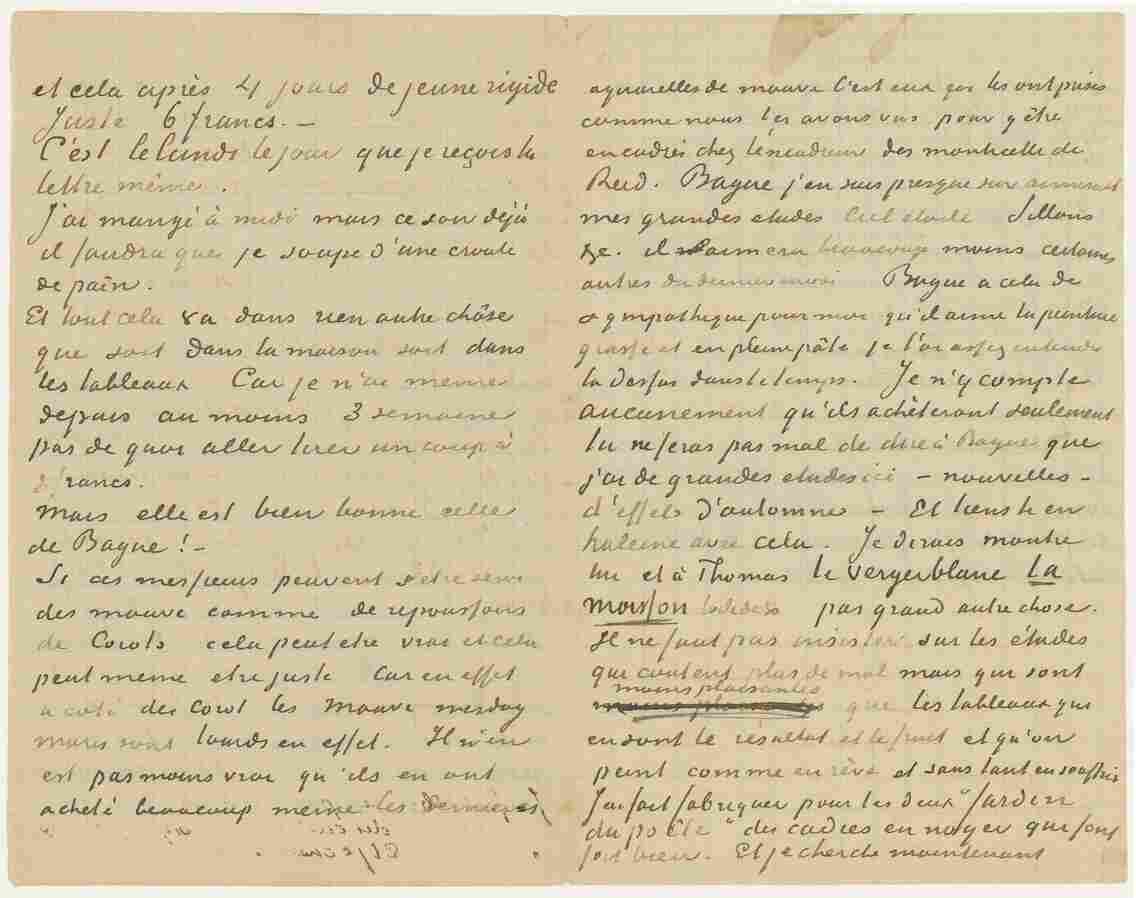 et cela après 4 jours de jeune rigide
Juste 6 francs. —
C'est le lundi le jour que je reçois ta
lettre même.
J'ai mangé à midi mais ce soir déjà
il faudra que je soupe d'une croute
de pain.
Et tout cela va dans rien autre chôse
que soit dans la maison soit dans
les tableaux Car je n'ai meme
depuis au moins 3 semaine
pas de quoi aller tirer un coup à
3 francs.
Mais elle est bien bonne celle
de Bague! —
Si ces messieurs peuvent s'etre servi
des mauve comme de repoussoirs
de Corots cela peut etre vrai et cela
peut meme etre juste Car en effet
a coté des Corot les Mauve mesdag
maris sont lourds en effet. Il n'en
est pas moins vrai qu'ils en ont
acheté beaucoup meme les dernières
aquarelles de mauve C'est eux qui les ont prises
comme nous les avons vus pour y être
encadrés chez l'encadreur des monticelli de
Reid. Bague j'en suis presque sur aimerait
mes grandes etudes Ciel étoilé Sillons
&c. il aimera beaucoup moins certaines
autres du dernier envoi Bague a cela de
sympathique pour moi qu'il aime la peinture
grasse et en pleine pâte je l'ai assez entendu
la dessus dans le temps. Je n'y compte
aucunement qu'ils achèteront seulement
tu ne feras pas mal de dire à Bague que
j'ai de grandes etudes ici — nouvelles —
d'effets d'automne — Et tiens le en
haleine avec cela. Je dirais montre
lui et à Thomas le verger blanc La
moisson pas grand autre chose.
Il ne faut pas insister sur les études
qui coutent plus de mal mais qui sont
moins plaisantes
que les tableaux qui
en sont le résultat et le fruit et qu'on
peint comme en rêve et sans tant en souffrir
J'ai fait fabriquer pour les deux "Jardin
du poête" des cadres en noyer qui font
fort bien. Et je cherche maintenant